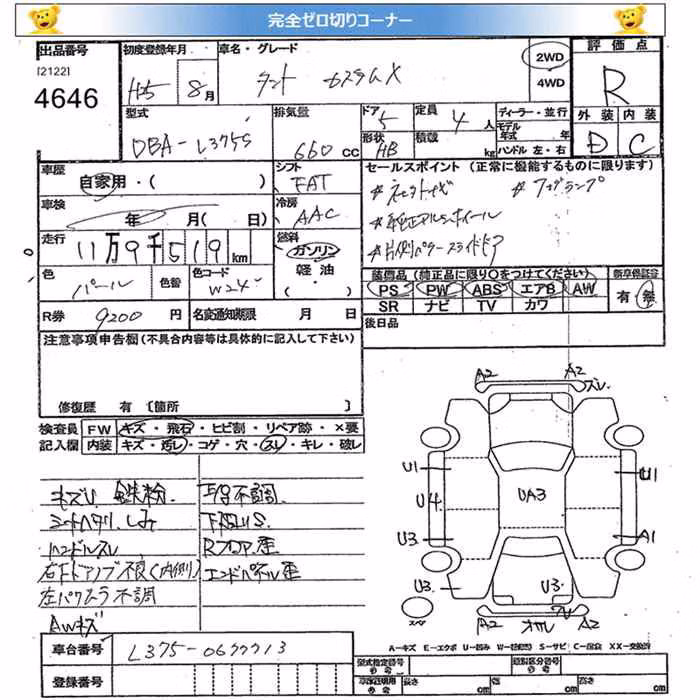 完全ゼロ切りコーナー
出品番号 初度登録年月 車名・グレード 評価点
[2122]
4646
H25 8月 タント カスタムX 2WD 4WD R
型式 排気量 ドア 定員 ディーラー・並行 外装 内装
DBA-L375S 660cc 5 4人 モデル年式 年 D C
形状 HB 積載 kg ハンドル 左・右
車歴 シフト セールスポイント (正常に機能するものに限ります)
自家用・( ) FAT
*純正アルミホイール *フォグランプ
車検 冷房
年 月( 日) AAC
*片側パワースライドドア
走行 燃料
11万9千519km ガソリン
軽油
・( )
色 色替 色コード
パール W24
装備品(純正品に限り○をつけてください) 新車保証書
PS PW ABS エアB AW 有・無
SR ナビ TV カワ
R券 9200円 名変通知期限 月 日 後日品
注意事項申告欄(不具合内容等は具体的に記入して下さい)
修復歴 有 〔箇所 〕
検査員 FW キズ・飛石・ヒビ割・リペア跡・×要
記入欄 内装 キズ・汚レ・コゲ・穴・スレ・キレ・破レ
キズU 鉄粉. F/G不調.
シートヘタリ.しみ 下廻りS
ハンドルスレ Rフロア歪
右Fドアノブ不良(内側) エンドパネル歪
左パワスラ不調
AWキズ
A2 A2 スレ
U1 U1
U4 UA3
U3 A1
U3 U3
スペア
A2 A2
A=キズ E=エクボ U=凹み S=サビ C=腐食 XX=交換済
車台番号 L375-0677713
登録番号
型式指定番号 類別区分番号
長さ cm 幅 cm 高さ cm